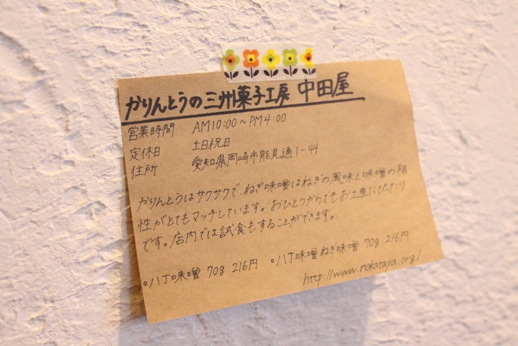 かりんとうの三州菓子工房 中田屋
営業時間 AM10:00～PM4:00
定休日 土日祝日
住所 愛知県岡崎市能見通1-44
かりんとうはサクサクで、ねぎ味噌はねぎの風味と味噌の相
性がとてもマッチしています。おひとつからでもお土産にぴったり
です。店内では試食もすることができます。
◎八丁味噌 70g 216円 ◎八丁味噌ねぎ味噌 70g 216円
http://www.nakataya.org/